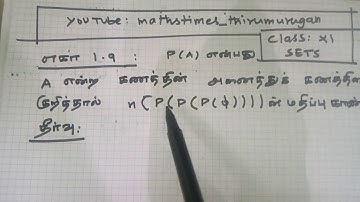 YouTube: mathstimes_thirumurugan
Class: XI
SETS
எகா 1.9 : P(A) என்பது
A என்ற கணத்தின் அனைத்துக் கணத்தின்
குறித்தால் n(P(P(P(ϕ)))) ன் மதிப்பு காண்
தீர்வு: